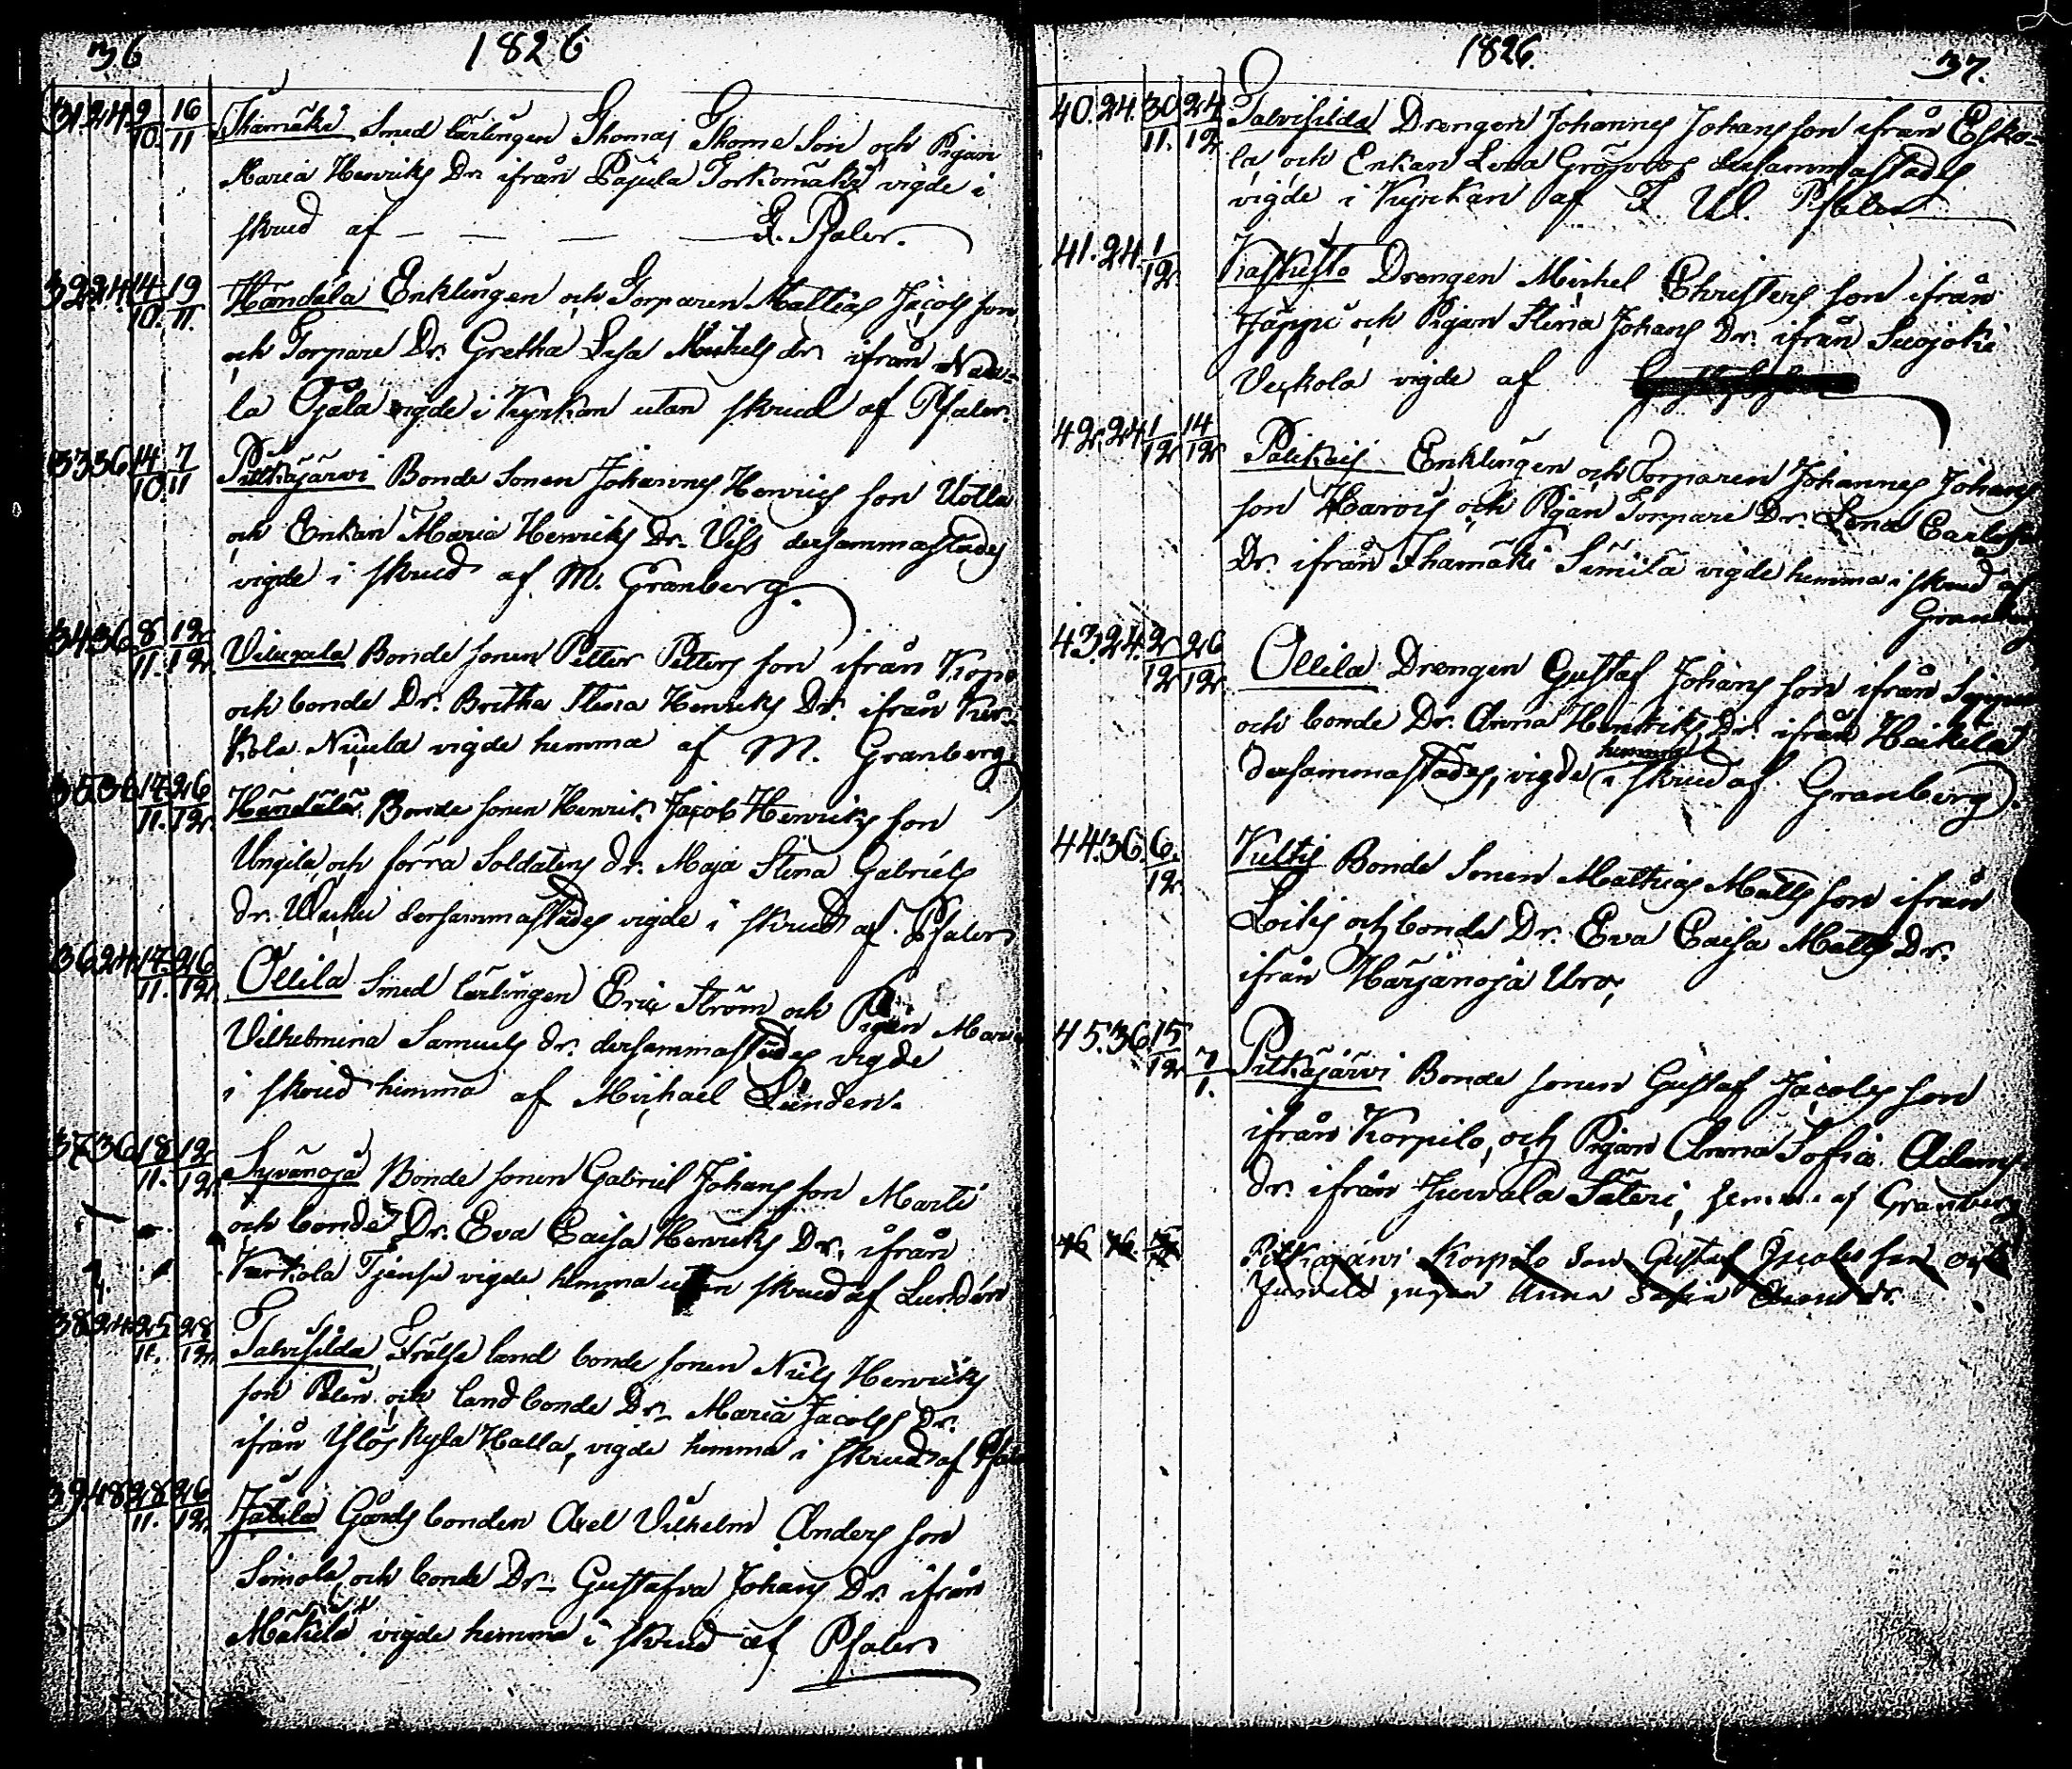 36 1826
31. 24. 9/10. 16/11 Thamäki Smed lärlingen Thomas Thome Son och Pigan
Maria Henriks Dr ifrån Pajula Torkomäki vigde i
skrud af — — — F. Pfaler.
32. 24. 14/10. 19/11. Händälä Enklingen och Torparen Mattias Jacobs son
och Torpare Dr. Gretha Lisa Mickels dr ifrån
la Ojala vigde i Kyrkan utan skrud af Pfaler.
33 36 14/10 7/11 Pitkäjärvi Bonde Sonen Johannes Henrics son Uotila
och Enkan Maria Henriks Dr. Viss dersammastades
vigde i skrud af M. Granberg.
34. 36. 8/11. 12/12. Bonde sonen Petter Petters son ifrån
och bonde Dr. Britha Stina Henriks Dr. ifrån Kur-
kola Niuula vigde hemma af M. Granberg
35. 36 17/11. 26/12. Händälä Bonde sonen Henrik Jacob Henriks son
Ungila, och förra Soldatens dr. Maja Stina Gabriels
dr. dersammastädes vigde i skrud af Pfaler
36 24. 17/11. 26/12. Ollila Smed lärlingen Eric Ström och Pigan Maria
Vilhelmina Samuels dr. dersammastädes vigde
i skrud hemma af Michael Lunden.
37 36 18/11. 12/12. Syvänoja Bonde sonen Gabriel Johans son Marti
och bonde Dr. Eva Caisa Henriks Dr. ifrån
Kurkola vigde hemma utan skrud af Lundén
38. 24. 25/11. 28/12. Talvisilda Frälse land bonde sonen Nils Henriks
son och landbonde Dr. Maria Jacobs Dr.
ifrån Ylös kylä Halla, vigde hemma i skrud af Pfaler
39. 48. 28/11. 26/12. Jätilä Gårds bonden Axel Vilhelm Anders son
Simola, och bonde Dr. Gustafva Johans Dr. ifrån
Mäkilä vigde hemma i skrud af Pfaler
1826. 37.
40. 24. 30/11. 24/12 Talvisilda Drengen Johannes Johans son ifrån Esko-
la, och Enkan Lisa Gröroos dersammastades
vigde i Kyrkan af F. Ul. Pfaler
41. 24. 1/12. Kaskisto Drengen Michel Christers son ifrån
Jäppi och Pigan Stina Johans Dr. ifrån Suojoki
Veskola vigde af
42. 24. 1/12 14/12 Palikais Enklingen och Torparen Johannes Johans
son Harois och Pigan Torpare Dr. Lena Carls
Dr. ifrån Thamäki Simila vigde hemma i skrud af
Granberg
43. 24. 2/12 26/12 Ollila Drengen Gustaf Johans son ifrån
och bonde Dr. Anna Henriks Dr. ifrån Heikilä
hemma
dersammastades, vigde i skrud af Granberg.
44. 36. 6/12. Kultis Bonde Sonen Mathias Matts son ifrån
Loitis och bonde Dr. Eva Caisa Matts Dr.
ifrån Härjänoja Uro,
45. 36. 15/12 7/1. Pitkäjärvi Bonde sonen Gustaf Jacobs son
ifrån Korpilo, och Pigan Anna Sofia Adams
dr. ifrån Juvvala Säteri, hemma af Granberg
46 Pitkäjärvi Korpilo son Gustaf Jacobs son och
Juvvala pigan Anna Sofia Adams dr.